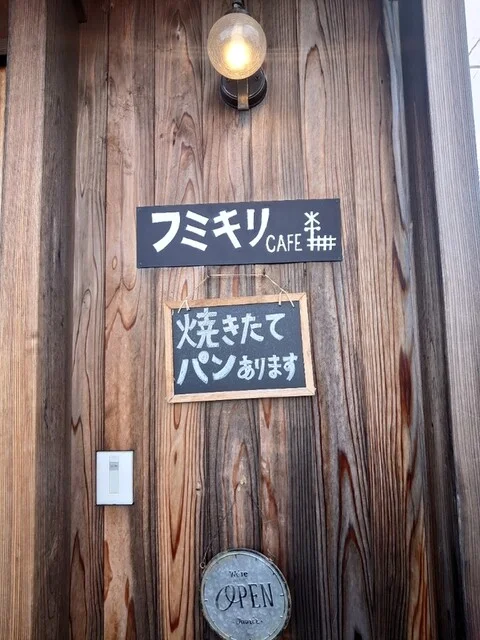 フミキリ CAFE
焼きたて
パンあります
OPEN